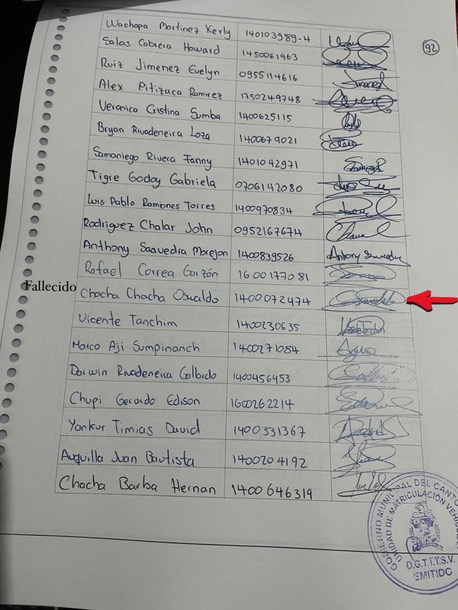 Wachapa Martinez Kerly 140103989-4
92
Salas Cabrera Howard 1450061963
Ruiz Jimenez Evelyn 0955114616
Alex Pitizaca Ramirez 1750249748
Veronica Cristina Sumba 1400625115
Bryan Rivadeneira Loza 1400679021
Samaniego Rivera Fanny 1401042971
Tigre Godoy Gabriela 0706142080
Luis Pablo Ramones Torres 1400970834
Rodriguez Chalar John 0952167674
Anthony Saavedra Morejon 1400839526 Antony Saavedra
Rafael Correa Garzón 1600177081
Fallecido
Chacha Chacha Oswaldo 1400072474
Vicente Tanchim 1400230635
Marco Aji Sumpinanch 1400271084
Darwin Rivadeneira Gallardo 1400456453
Chupi Gerardo Edison 1600262214
Yankur Timias David 1400531367
Auquilla Juan Bautista 1400204192
Chacha Barba Hernan 1400646319
GOBIERNO MUNICIPAL DEL CANTO
UNIDAD DE MATRICULACIÓN VEHICU
D.G.T.I.T.S.V.
EMITIDO